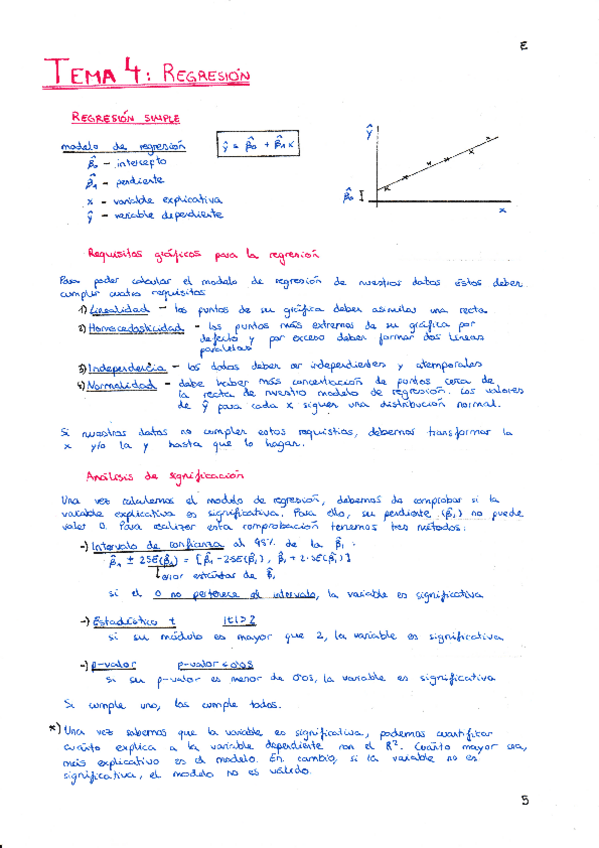 E
TEMA 4: REGRESIÓN
REGRESIÓN SIMPLE
modelo de regresión
ŷ = β̂₀ + β̂₁ x
β̂₀ - intercepto
β̂₁ - pendiente
x - variable explicativa
ŷ - variable dependiente
ŷ
β̂₀
x
Requisitos gráficos para la regresión
Para poder calcular el modelo de regresión de nuestros datos éstos deben
cumplir cuatro requisitos
1) Linealidad - los puntos de su gráfica deben asimilar una recta
2) Homocedasticidad - los puntos más extremos de su gráfica por
defecto y por exceso deben formar dos líneas
paralelas
3) Independencia - los datos deben ser independientes y atemporales
4) Normalidad - debe haber más concentración de puntos cerca de
la recta de nuestro modelo de regresión. Los valores
de ŷ para cada x siguen una distribución normal.
Si nuestros datos no cumplen estos requisitos, debemos transformar la
x y/o la y hasta que lo hagan.
Análisis de significación
Una vez calculemos el modelo de regresión, debemos de comprobar si la
variable explicativa es significativa. Para ello, su pendiente (β₁) no puede
valer 0. Para realizar esta comprobación tenemos tres métodos:
-) Intervalo de confianza al 95% de la β̂₁ :
β̂₁ ± 2SE(β̂₁) = [β̂₁ - 2·SE(β̂₁), β̂₁ + 2·SE(β̂₁)]
error estándar de β̂₁
si el 0 no pertenece al intervalo, la variable es significativa
-) Estadístico t |t| > 2
si su módulo es mayor que 2, la variable es significativa
-) p-valor p-valor < 0'05
si su p-valor es menor de 0'05, la variable es significativa
Si cumple uno, los cumple todos.
*) Una vez sabemos que la variable es significativa, podemos cuantificar
cuánto explica a la variable dependiente con el R². Cuánto mayor sea,
más explicativo es el modelo. En cambio, si la variable no es
significativa, el modelo no es válido.
5